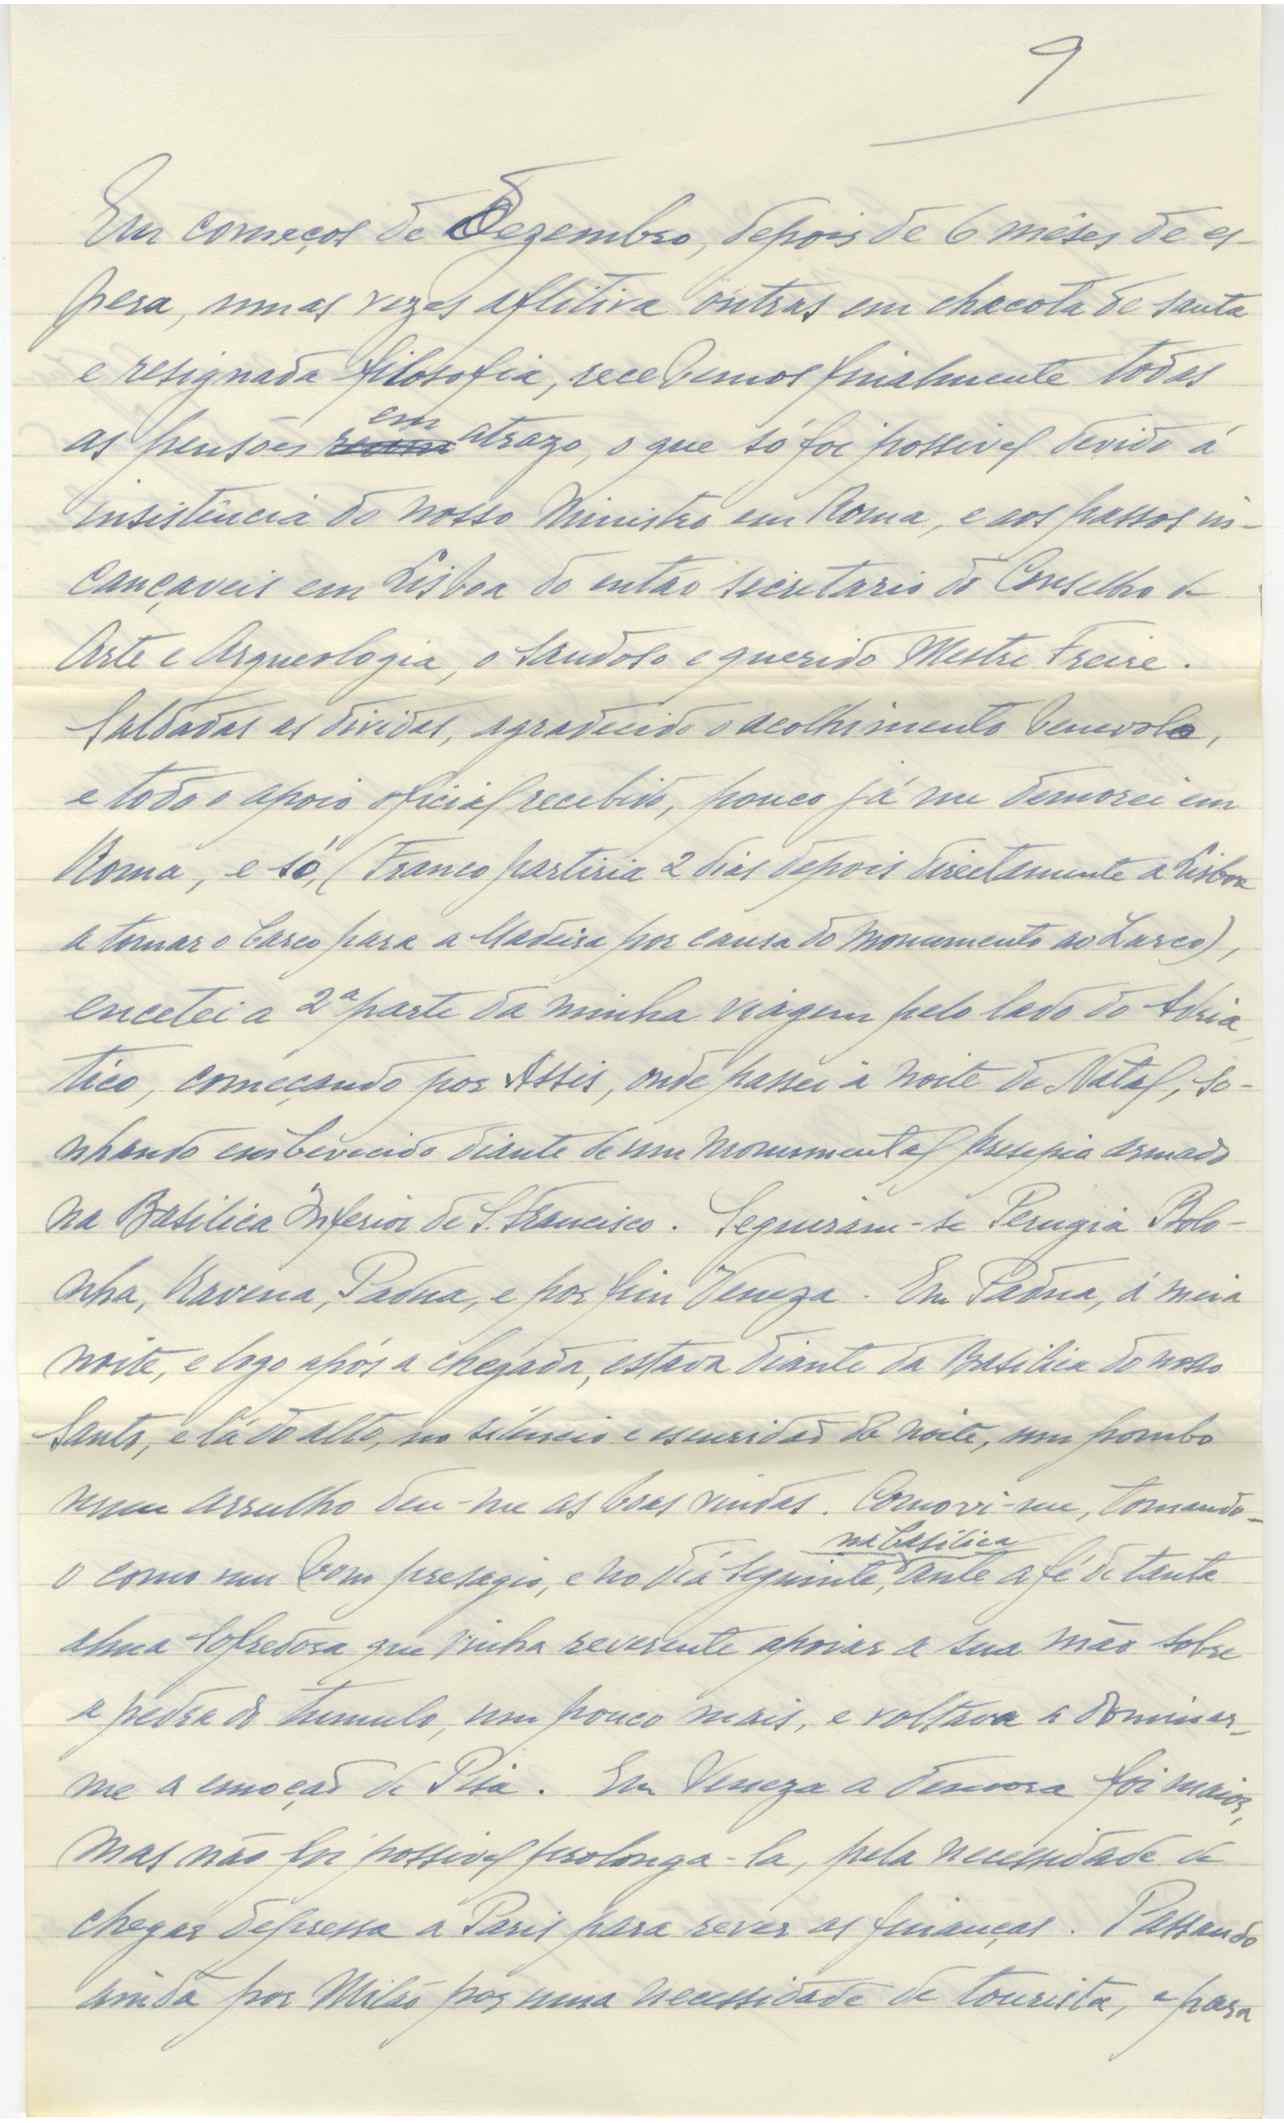 9
Em começos de Dezembro, depois de 6 mêses de es-
pera, umas vezes aflitiva outras em chacota de santa
e resignada filosofia, recebemos finalmente todas
as pensões em atrazo, o que só foi possivel devido á
insistência do nosso Ministro em Roma, e aos passos in-
cançaveis em Lisboa do então secretario do Conselho de
Arte e Arqueologia, o saudoso e querido Mestre Freire.
Saldadas as dividas, agradecido o acolhimento benevolo,
e todo o apoio oficial recebido, pouco já me demorei em
Roma, e só, (Franco partiria 2 dias depois directamente a Lisboa
a tomar o barco para a Madeira por causa do monumento ao Zarco),
encetei a 2ª parte da minha viagem pelo lado do Adria-
tico, começando por Assis, onde passei a noite de Natal, so-
nhando embevecido diante de um monumental presepio armado
na Basilica Inferior de S. Francisco. Seguiram-se Perugia Bolo-
nha, Ravena, Padua, e por fim Veneza. Em Padua, á meia
noite, e logo após a chegada, estava diante da Basilica do nosso
Santo, e lá do alto, no silencio e escuridão da noite, um pombo
num arrulho deu-me as boas vindas. Comovi-me, tomando-
o como um bom presagio, e no dia seguinte, na basilica ante a fé de tanta
alma sofredora que vinha reverente apoiar a sua mão sobre
a pedra do tumulo, um pouco mais, e voltava a dominar-
me a emoção de Pisa. Em Veneza a demora foi maior,
mas não foi possivel prolonga-la, pela necessidade de
chegar depressa a Paris para rever as finanças. Passando
ainda por Milão por uma necessidade de tourista, e para